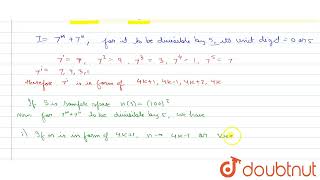 I = 7^m + 7^n, for it to be divisible by 5, its unit digit = 0 or 5
7^1 = 7, 7^2 = 9, 7^3 = 3, 7^4 = 1, 7^5 = 7
7^r = 7, 9, 3, 1
therefore 7^r is in form of 4k+1, 4k-1, 4k+2, 4k
If S is sample space n(S) = (100)^2
Now for 7^m + 7^n to be divisible by 5, we have
i) If m is in form of 4k+1, n → 4k-1 or
doubtnut